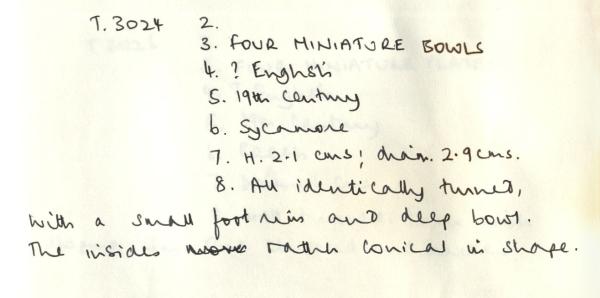 T.3024 2.
3. FOUR MINIATURE BOWLS
4. ? English
5. 19th Century
6. Sycamore
7. H. 2.1 cms; diam. 2.9 cms.
8. All identically turned,
with a small foot rim and deep bowl.
The insides rather conical in shape.